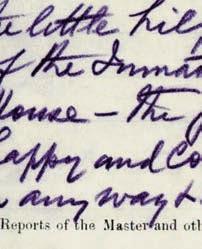 the little hil
of the Inmat
House – the
happy and Co
in any way &
Reports of the Master and oth